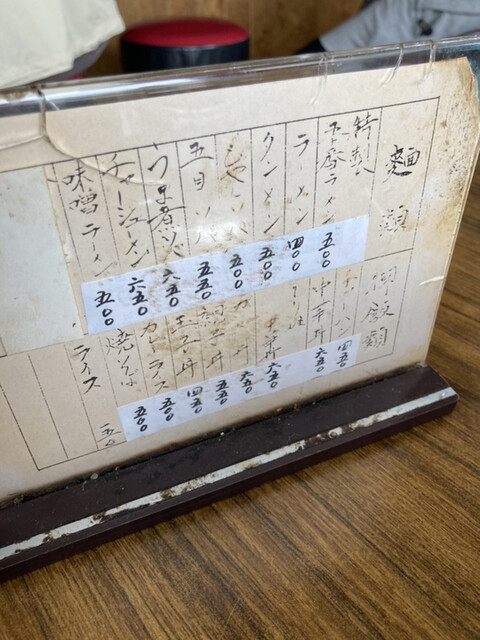 麺類
特製
五香ラーメン 五〇〇
ラーメン 四〇〇
タンメン 五〇〇
五〇〇
五目ソバ 五五〇
うま煮ソバ 六五〇
チャーシューメン 六五〇
味噌ラーメン 五〇〇
御飯類
チャーハン 四五〇
中華丼 六五〇
六五〇
六五〇
五五〇
玉子丼 四五〇
カレーライス 五〇〇
焼そば 五〇〇
ライス 一五〇